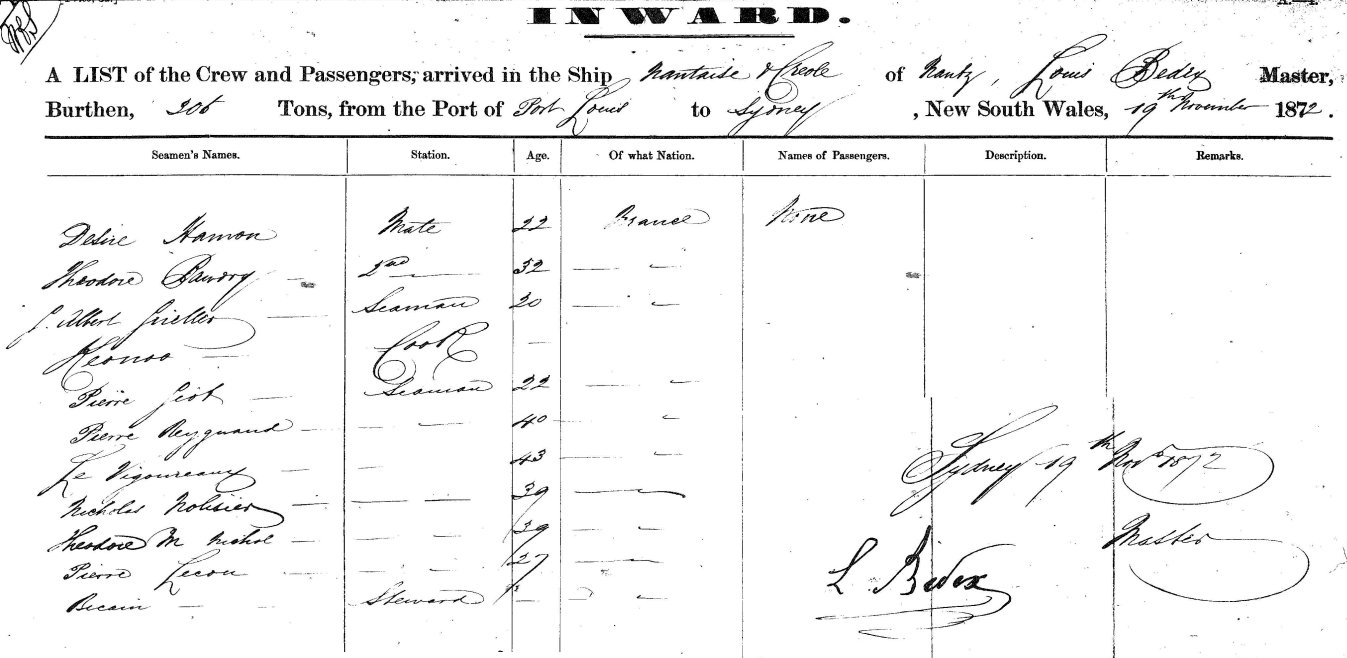 INWARD.
A LIST of the Crew and Passengers, arrived in the Ship Nantaise & Creole of Nantz, Louis Bedex Master,
Burthen, 206 Tons, from the Port of Port Louis to Sydney, New South Wales, 19th November 1872.
Seamen's Names. Station. Age. Of what Nation. Names of Passengers. Description. Remarks.
Desire Hamon Mate 22 France None
Theodore Baudry — 2nd — 32 — "
J. Albert — Seaman 20 — "
— Cook —
Pierre Giot — Seaman 22 — "
Pierre — — — 40 — "
Le Vigoureaux — — 43 — "
Nicholas — — — 39 — "
Theodore M Nichol — — — 39 — "
Pierre Lecou — — — 27 —
Becain — — Steward — — "
Sydney 19th Novr 1872
L. Bedex Master